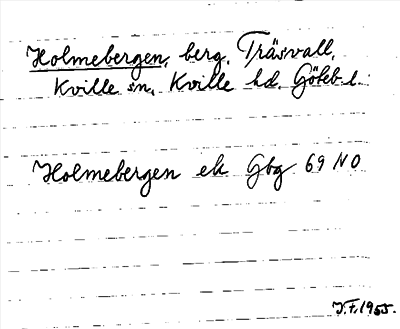 Holmebergen, berg, Träsvall,
Kville sn, Kville hd. Göteb. l.
Holmebergen ek Gbg 69 NO
J.F. 1955.